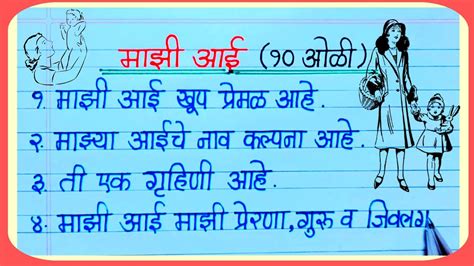 माझी आई (१० ओळी)
१. माझी आई खूप प्रेमळ आहे.
२. माझ्या आईचे नाव कल्पना आहे.
३. ती एक गृहिणी आहे.
४. माझी आई माझी प्रेरणा,गुरू व जिवलग